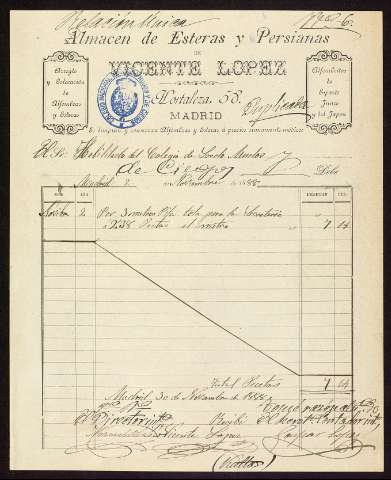 Relación única Nº 6.
Almacen de Esteras y Persianas
DE
VICENTE LOPEZ
Hortaleza, 58.
MADRID
Duplicada
Arreglo
y
Colocación
de
Alfombras
y
Esteras
Alfombritas
de
Esparto
Junco
y del Japon
Se limpian y conservan Alfombras y Esteras á precios sumamente módicos
El Sr. Habilitado del Colegio de Sordo Mudos y
de Ciegos Debe
Madrid 2 de Noviembre de 1888
MES DIA PESETAS CS.
Novbre 2 Por 3 metros para la Secretaria
á 2.38 Pesetas el metro 7 14
Total Pesetas 7 14
Madrid 30 de Noviembre de 1888
El Director Recibí
Administrativo Vicente Lopez